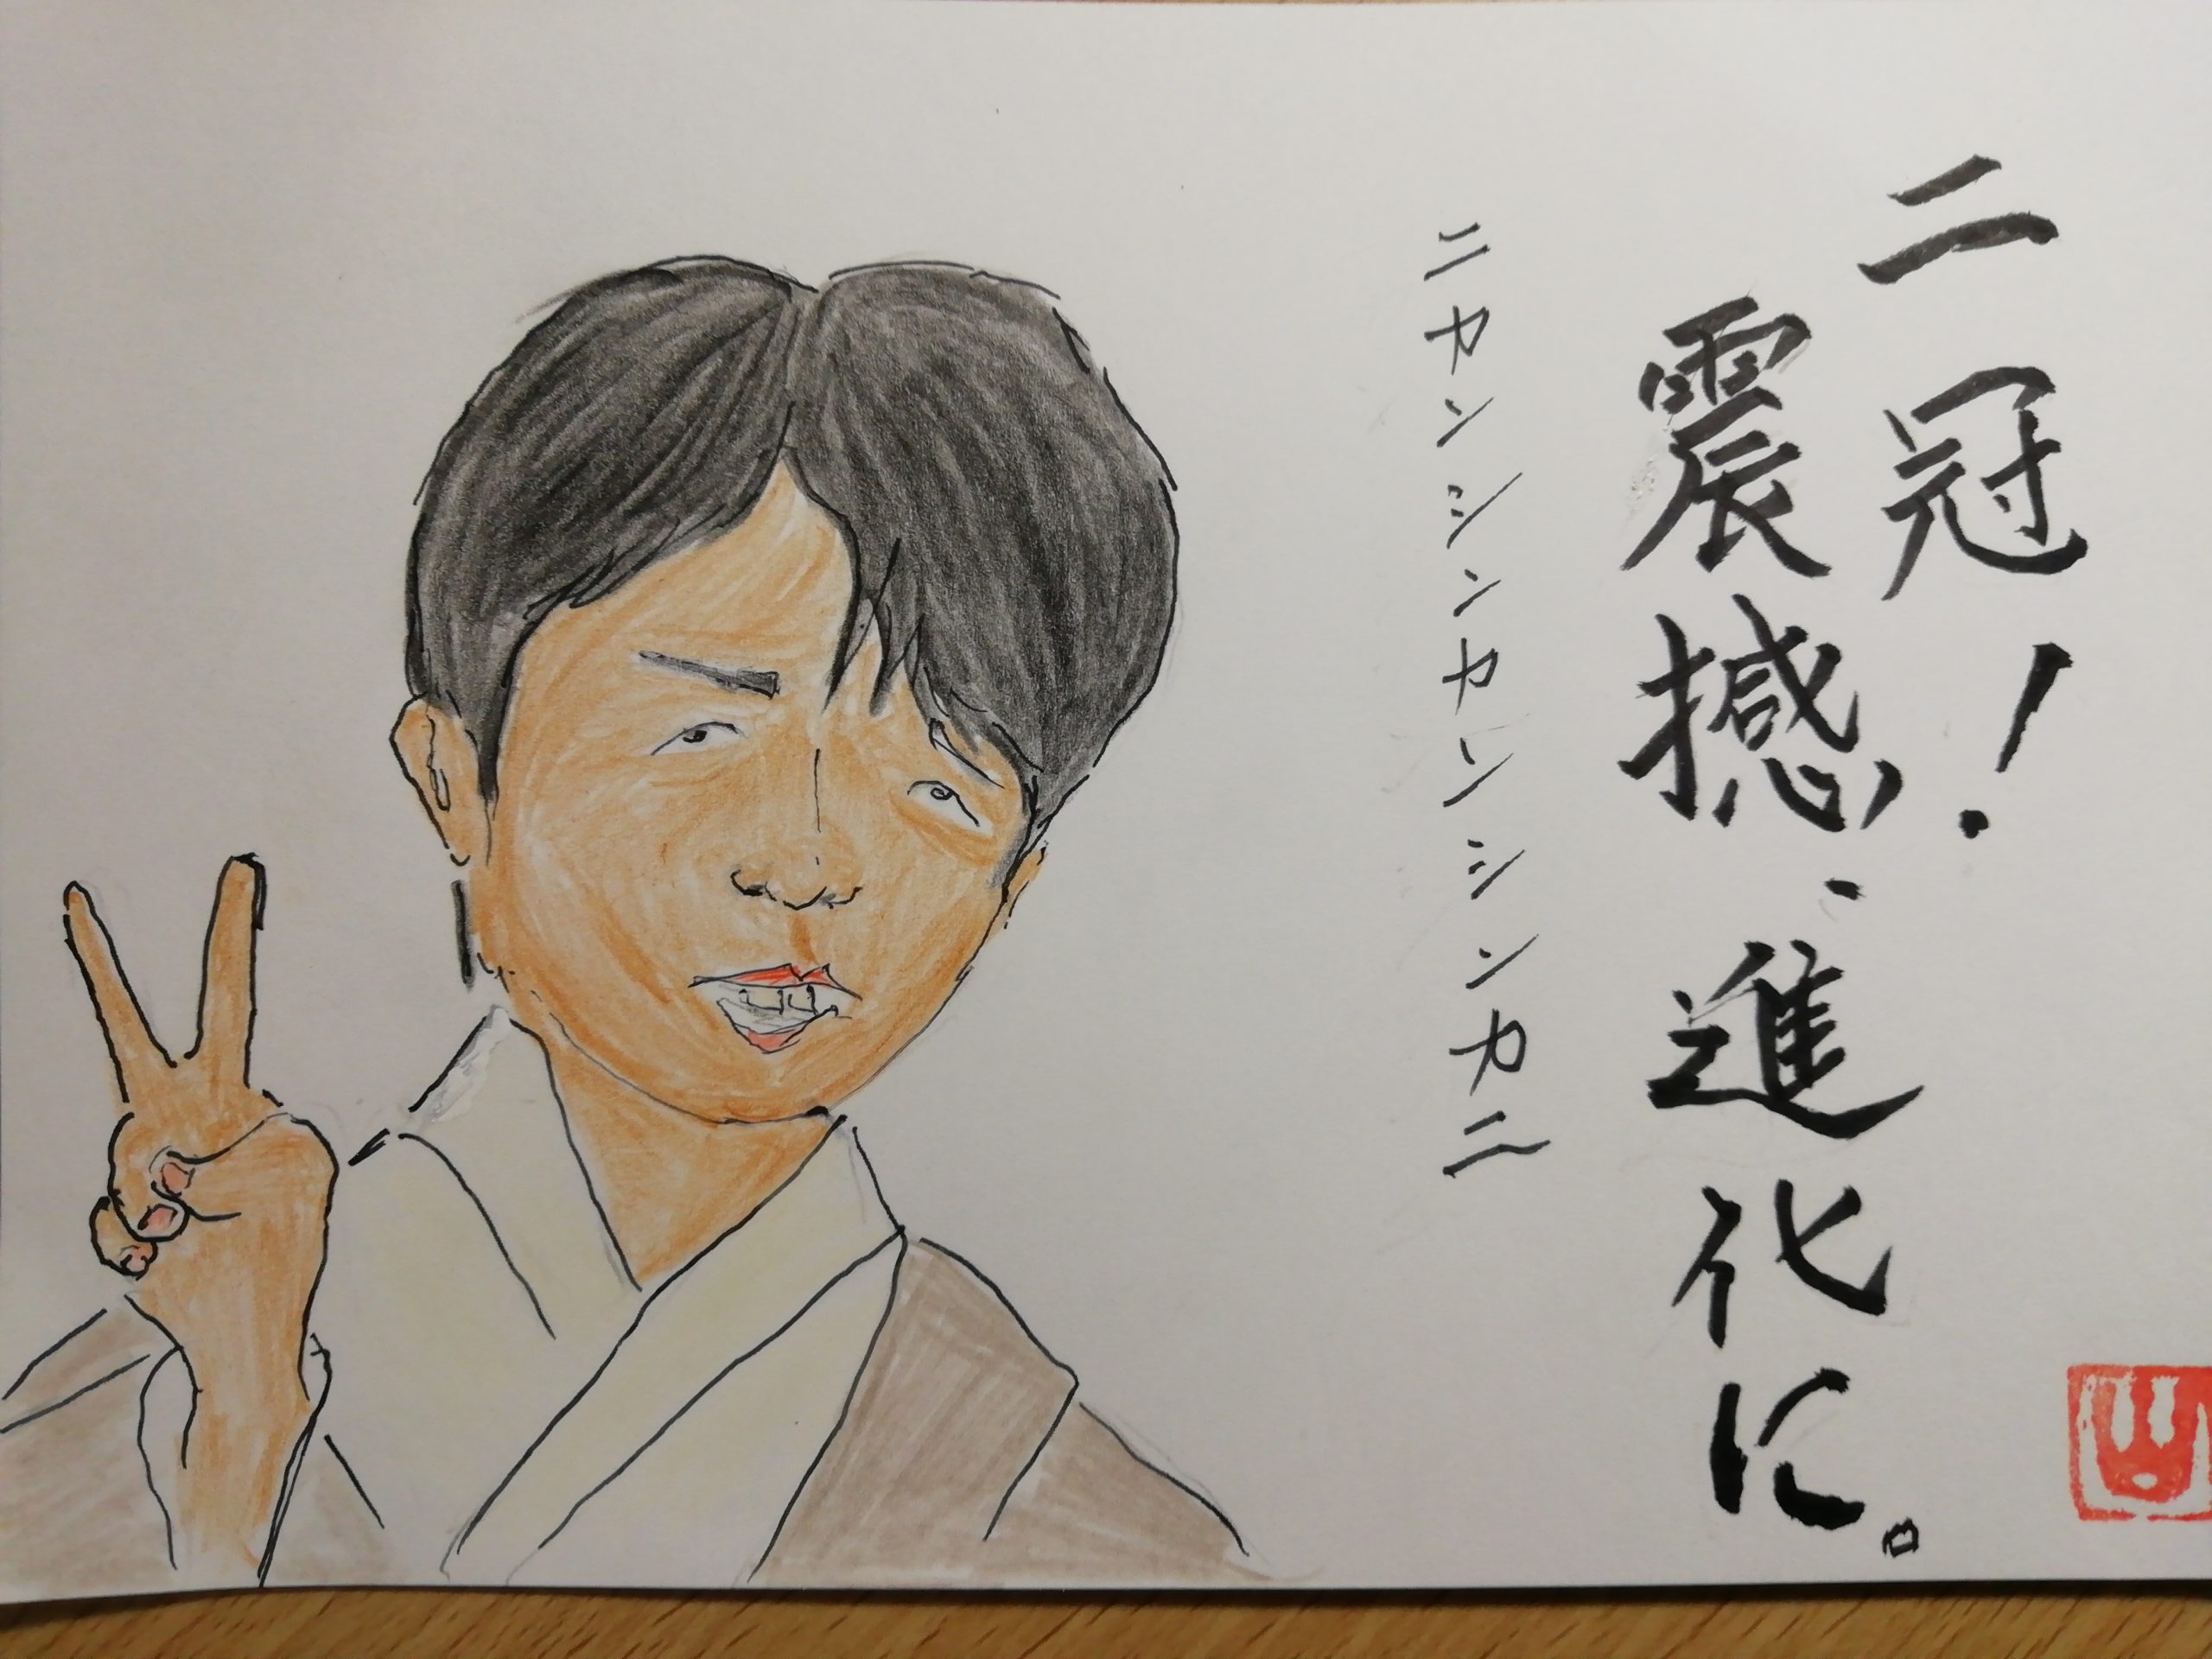 二冠!
震撼、進化に。
ニカンシンカンシンカニ